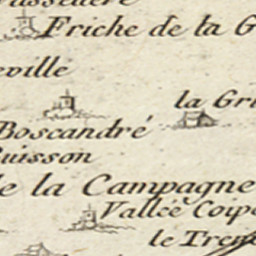 Friche de la G
eville
la Gri
Boscandré
Buisson
de la Campagne
Vallée Coip
le Trem